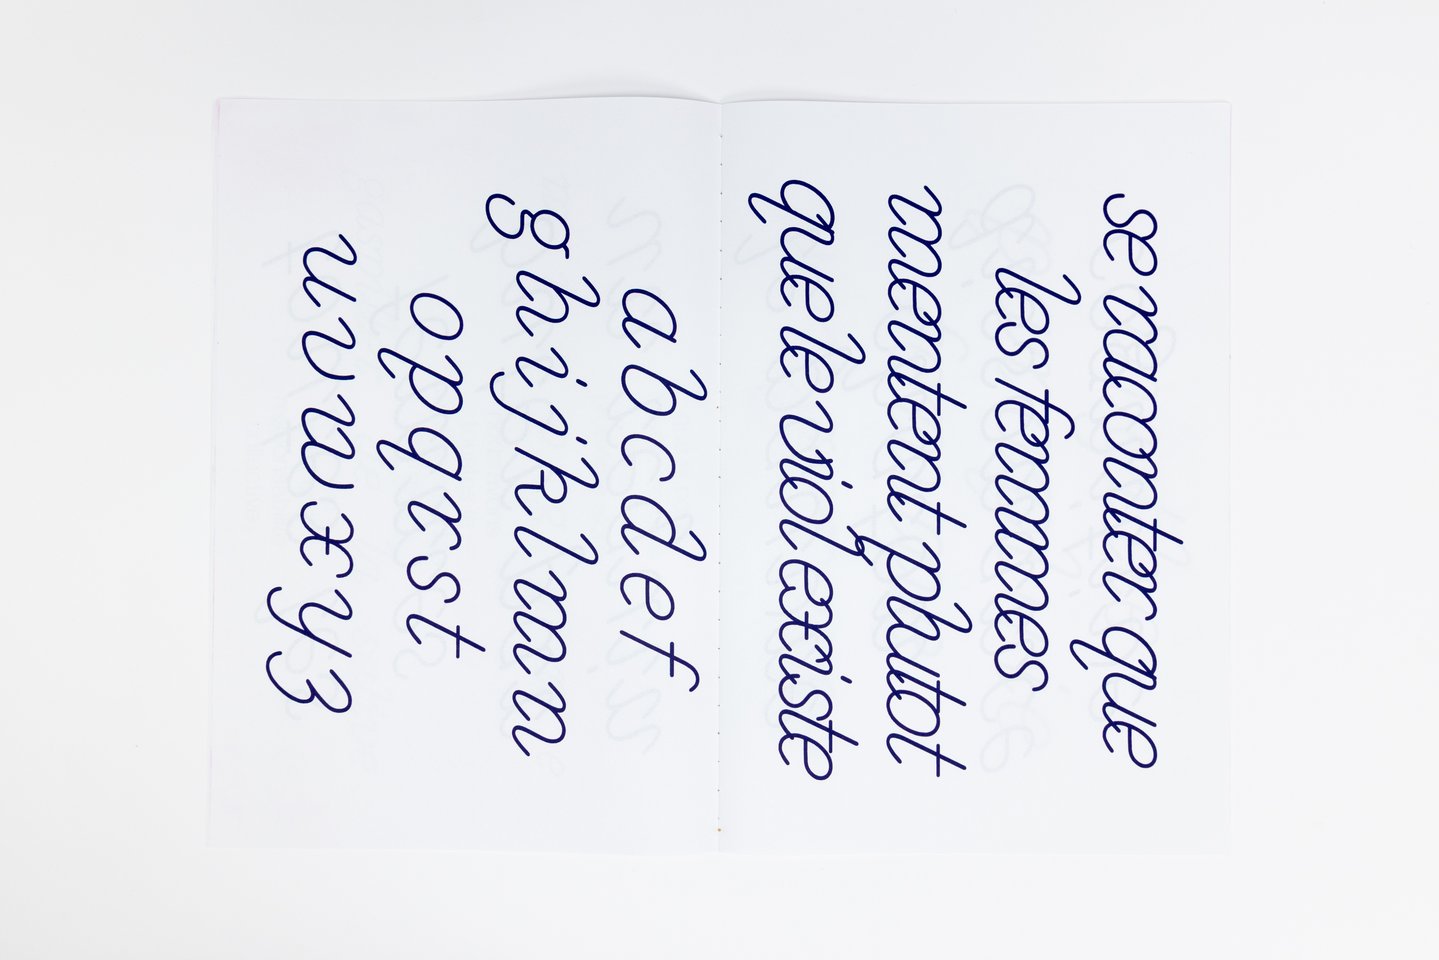 se raconter que
les femmes
mentent plutot
que le viol existe
a b c d e f
g h i j k l m n
o p q r s t
u v w x y z